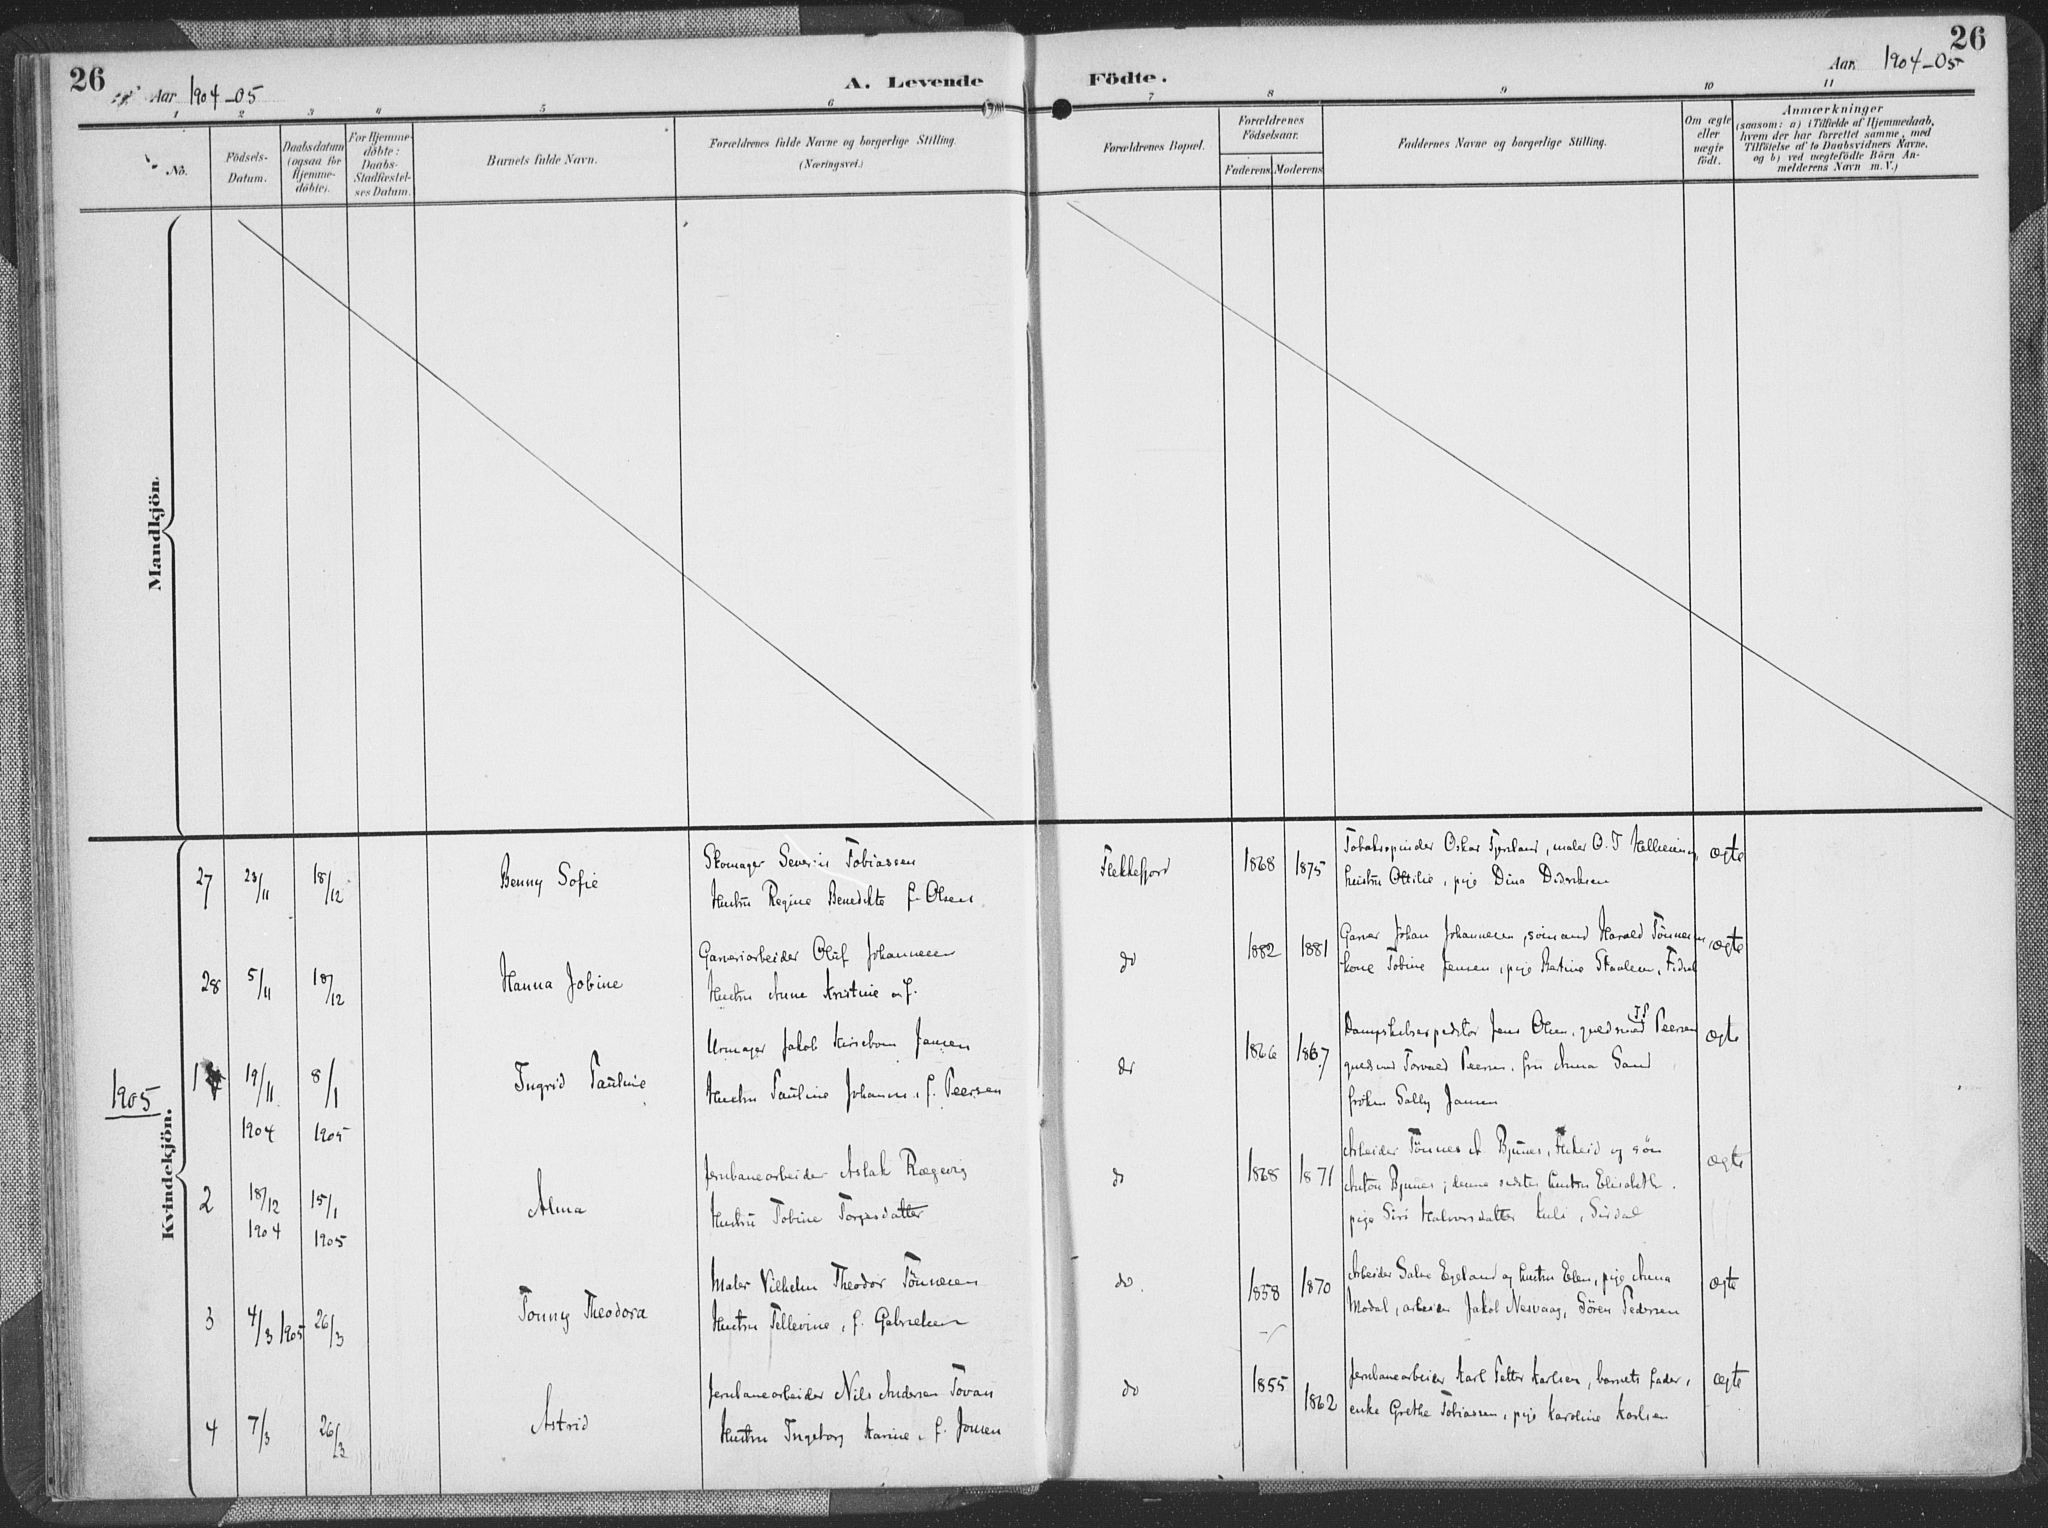 26
Aar 1904-05
A. Levende
Födte.
Aar 1904-05
26
1 2 3 4 5 6 7 8 9 10 11
No.
Födsels-Datum.
Daabsdatum (ogsaa for Hjemme-döbte).
For Hjemme-döbte: Daabs-Stadfæstel-ses Datum.
Barnets fulde Navn.
Forældrenes fulde Navne og borgerlige Stilling. (Næringsvei.)
Forældrenes Bopæl.
Forældrenes Födselsaar.
Faderens. Moderens.
Faddernes Navne og borgerlige Stilling.
Om ægte eller uægte födt.
Anmærkninger
(saasom: a) i Tilfælde af Hjemmedaab, hvem der har forrettet samme, med Tilföielse af to Daabsvidners Navne, og b) ved uægtefödte Börn An-melderens Navn m. V.)
Mandkjön.
Kvindekjön.
27 23/11 18/12 Benny Sofie
Skomager Severin Tobiassen
Hustru Regine Benedikte f. Olsen
Flekkefjord 1868 1875
Tobakspinder Oskar Fjeland, maler O. T.
hustru Ottilie, pige Dina Didriksen
ægte
28 5/11 18/12 Hanna Jobine
Garveriarbeider Oluf Johannesen
Hustru Anne Kristine
do 1882 1881
Garver Johan Johannesen, sömand Harald Tönnesen,
kone Tobine Jensen, pige Bertine
ægte
1905
1 19/11 1904 8/1 1905 Ingrid Pauline
Urmager Jakob Kirsebom Jansen
Hustru Pauline Johanne, f. Peersen
do 1866 1867
Dampskibsexpeditör Jens Olsen, guldsmed Peersen
guldsmed Torvald Peersen, fru Anna Sand
fröken Sally Jansen
ægte
2 18/12 1904 15/1 1905 Alma
Jernbanearbeider Aslak Rægevig
Hustru Tobine Torgersdatter
do 1868 1871
Arbeider Tönnes A. Bjunes, og sön
Anton Bjunes, hustru Elisabeth.
pige Siri Halvorsdatter Kuli, Sirdal
ægte
3 4/3 1905 26/3 Tonny Theodora
Maler Vilhelm Theodor Tönnesen
Hustru Tellevine, f. Gabrielsen
do. 1858 1870
Arbeider Salve Egeland og hustru Elen, pige Anna
Modal, arbeider Jakob Nesvaag, Sören Pedersen
ægte
4 7/3 26/3 Astrid
Jernbanearbeider Nils Andersen Tovan
Hustru Ingeborg Karine, f. Jonsen
do 1855 1862
Jernbanearbeider Karl Petter Karlsen, barnets fader,
enke Grethe Tobiassen, pige Karoline Karlsen
ægte